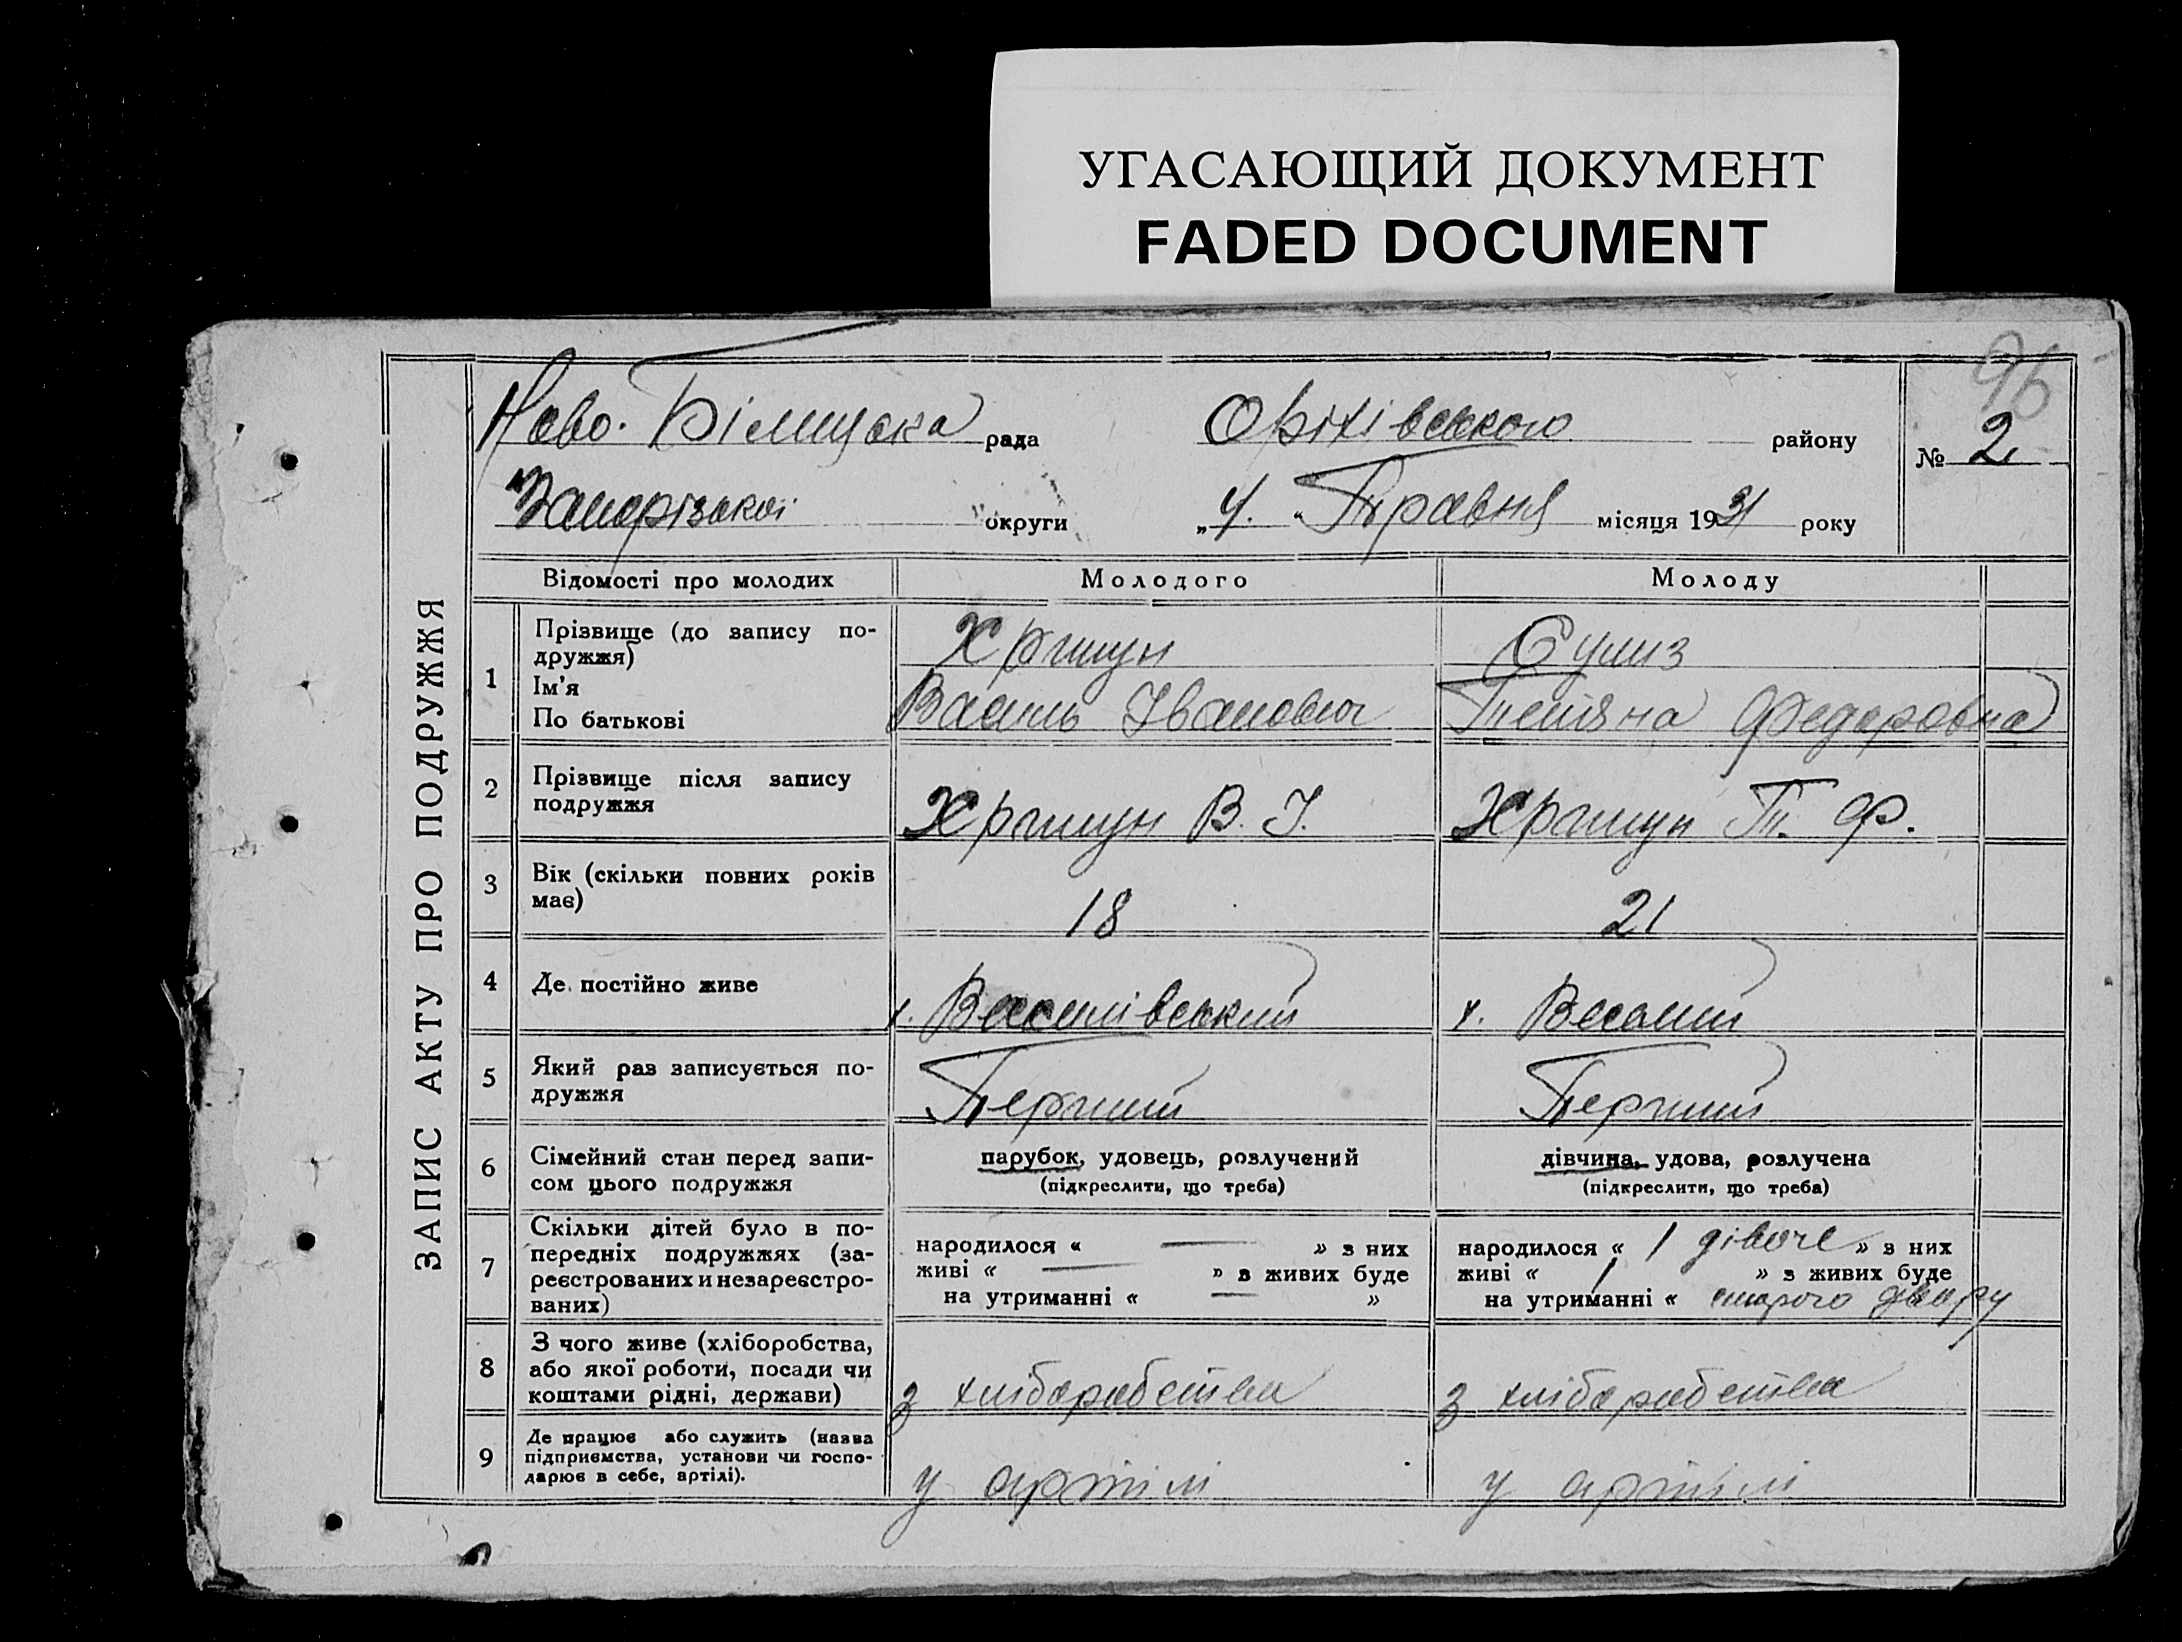 УГАСАЮЩИЙ ДОКУМЕНТ
FADED DOCUMENT
96
ЗАПИС АКТУ ПРО ПОДРУЖЖЯ
Ново. рада Оріхівського району
№ 2
Запорізької округи „4.“ Травня місяця 1931 року
Відомості про молодих Молодого Молоду
1 Прізвище (до запису по-
дружжя)
Ім'я
По батькові
Василь Іванович
Тетяна Федоровна
2 Прізвище після запису
подружжя
В. І.
Т. Ф.
3 Вік (скільки повних років
має)
18
21
4 Де постійно живе
х. Василівський
х. Веселий
5 Який раз записується по-
дружжя
Перший
Перший
6 Сімейний стан перед запи-
сом цього подружжя
парубок, удовець, розлучений
(підкреслити, що треба)
дівчина, удова, розлучена
(підкреслити, що треба)
7 Скільки дітей було в по-
передніх подружжях (за-
реєстрованих и незареєстро-
ваних)
народилося « — » з них
живі « — » з живих буде
на утриманні « — »
народилося « 1 дівоче » з них
живі « 1 » з живих буде
на утриманні « старого двору
8 З чого живе (хліборобства,
або якої роботи, посади чи
коштами рідні, держави)
з хліборобства
з хліборобства
9 Де працює або служить (назва
підприємства, установи чи госпо-
дарює в себе, артілі).
у артілі
у артілі